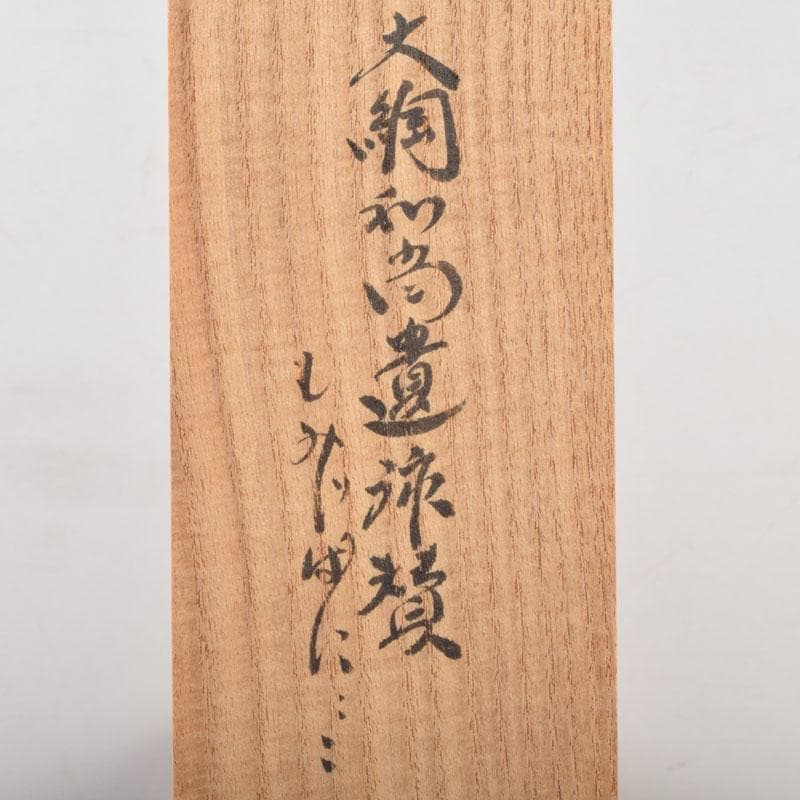 大綱和尚遺詠賛
もみぢ田に……